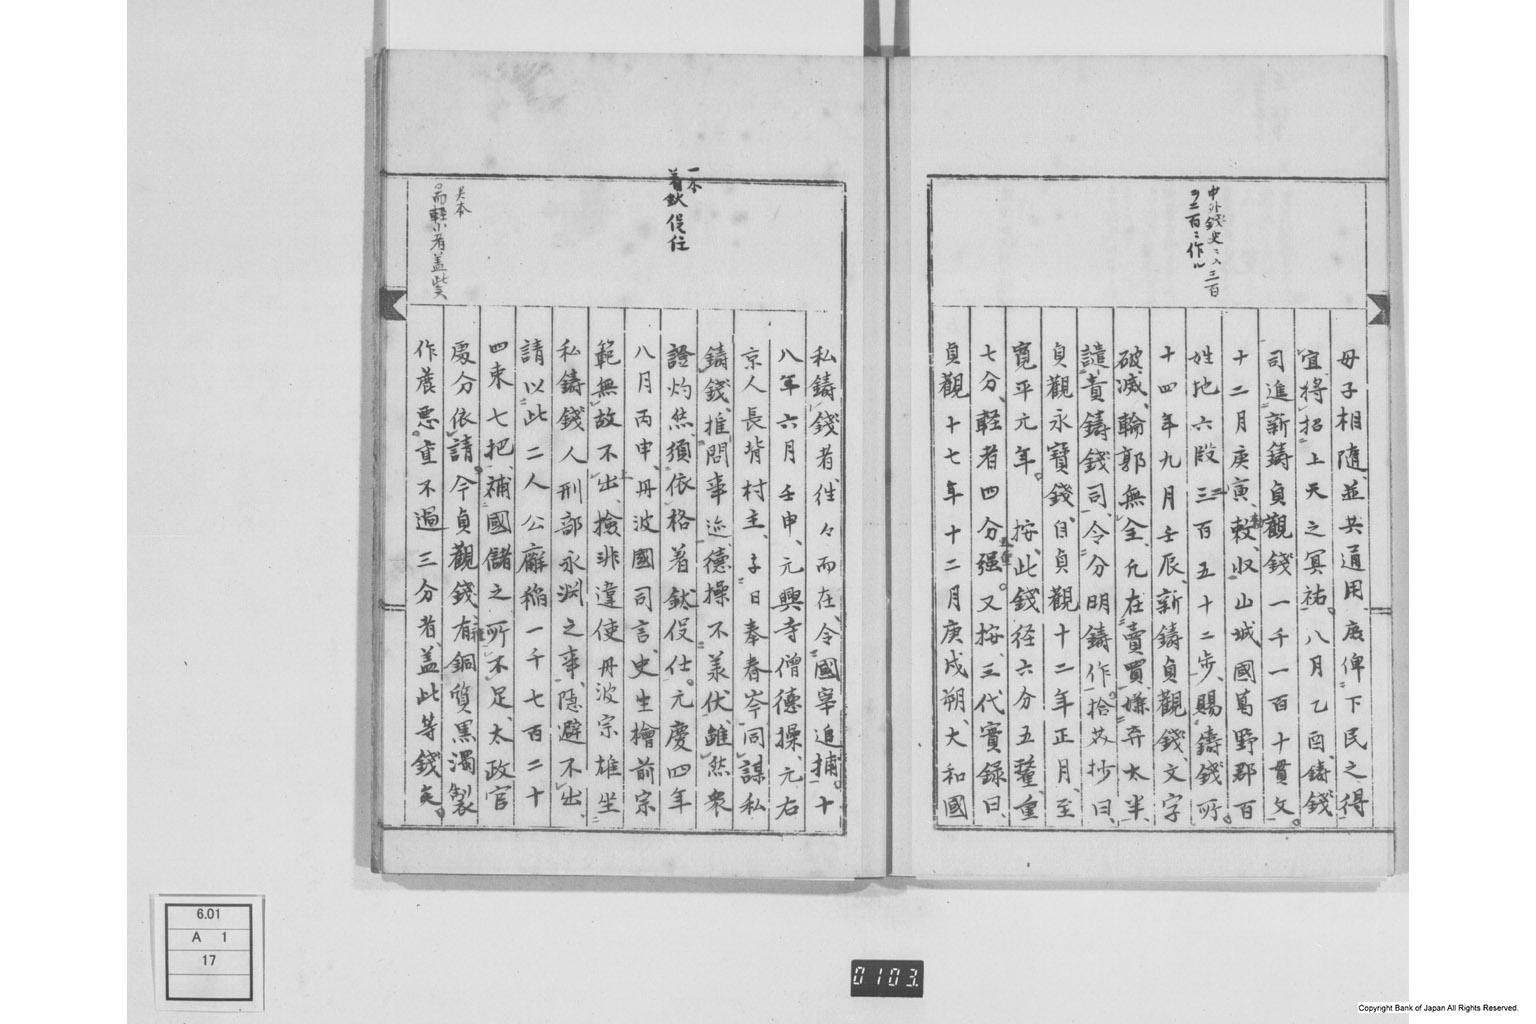 中外錢史ニハ三百
ヲ二百ニ作ル
母子相隨、並共通用、庶俾下民之得
宜、將招上天之冥祐。八月乙酉、鑄錢
司進新鑄貞觀錢一千一百十貫文。
十二月庚寅、勅、收山城國葛野郡百
姓地六段三百五十二步、賜鑄錢所。
十四年九月壬辰、新鑄貞觀錢、文字
破滅、輪郭無全、凡在賣買、嫌弃太半、
譴責鑄錢司、令分明鑄作。拾芥抄曰、
貞觀永寶錢、自貞觀十二年正月、至
寬平元年。按、此錢徑六分五釐、重
七分、輕者四分强。又按、三代實錄曰、
貞觀十七年十二月庚戌朔、大和國
一本
着釱役仕
私鑄錢者、往々而在、令國宰追捕。十
八年六月壬申、元興寺僧德操、元右
京人長背村主、子日奉春岑同謀私
鑄錢、推問事迹、德操不羡伏、雖然衆
證灼然、須依格着釱役仕。元慶四年
八月丙申、丹波國司言、史生檜前宗
範無故不上、撿非違使丹波宗雄坐
私鑄錢人刑部永渕之事、隱避不出、
請以此二人公廨稲一千七百二十
四束七把、補國儲之所不足、太政官
處分依請。今貞觀錢、有銅質黒濁製
作麁悪。重不過三分者、盖此等錢矣。
而輕小者盖此矣
6.01
A 1
17
0103.
Copyright Bank of Japan All Rights Reserved.